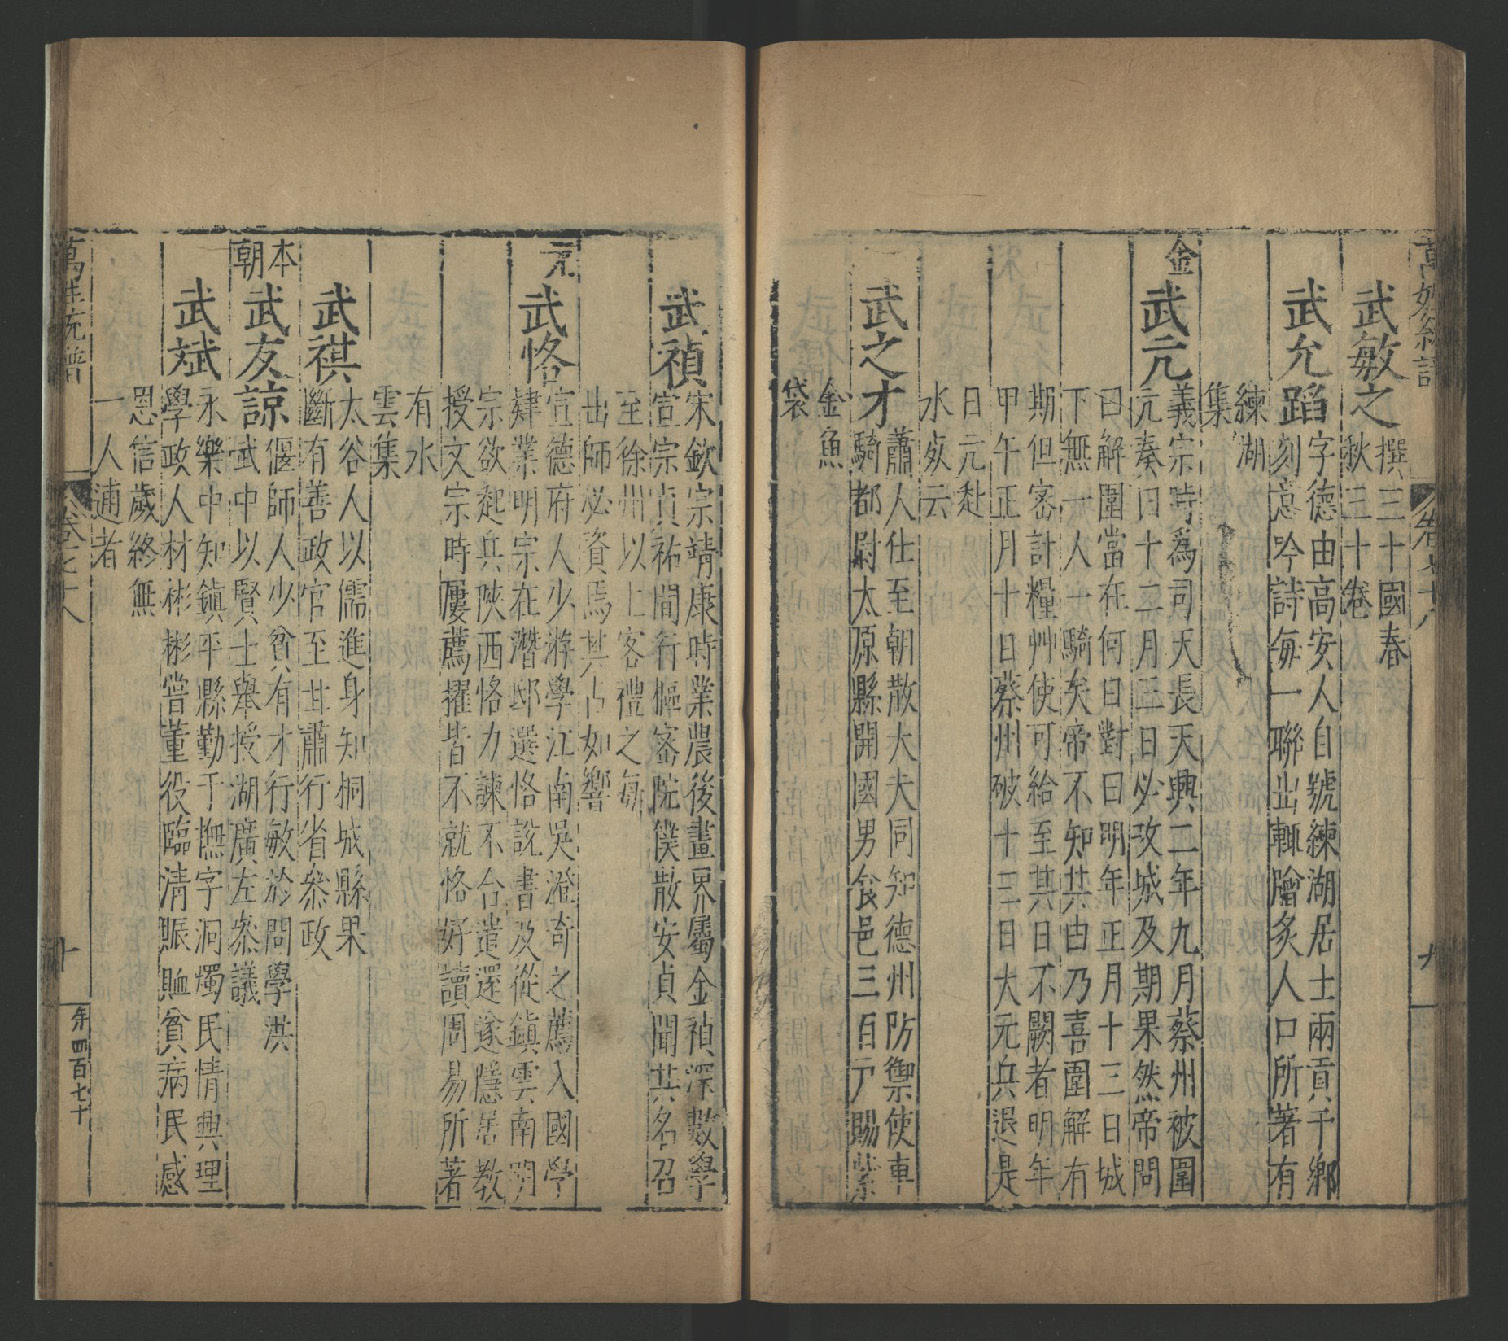 萬姓統譜 卷七十八 九
武敏之 撰三十國春
秋三十卷
武允蹈 字德由高安人自號練湖居士兩貢于鄉
刻意吟詩每一聯出輒膾炙人口所著有
練湖
集
金
武元 義宗時為司天長天興二年九月蔡州被圍
元奏曰十二月三日必攻城及期果然帝問
曰解圍當在何日對曰明年正月十三日城
下無一人一騎矣帝不知其由乃喜圍解有
期但密計糧艸使可給至其日不闕者明年
甲午正月十日蔡州破十三日大元兵退是
日元赴
水死云
武之才 蕭人仕至朝散大夫同知德州防禦使車
騎都尉太原縣開國男食邑三百戶賜紫
金魚
袋
武禎 宋欽宗靖康時業農後畫界屬金禎深數學
宣宗貞祐間行樞密院僕散安貞聞其名召
至徐州以上客禮之每
出師必資焉其占如響
元
武恪 宣德府人少游學江南吳澄奇之薦入國學
肄業明宗在潛邸選恪說書及從鎮雲南明
宗欲起兵陝西恪力諫不合遣還遂隱居教
授文宗時屢薦擢皆不就恪好讀周易所著
有水
雲集
武祺 太谷人以儒進身知桐城縣果
斷有善政官至甘肅行省參政
本
朝
武友諒 偃師人少貧有才行敏於問學洪
武中以賢士舉授湖廣左參議
武斌 永樂中知鎮平縣勤于撫字洞燭民情興理
學政人材彬彬嘗董役臨清賑賉貧病民感
恩信歲終無
一人逋者
萬姓統譜 卷七十八 十 朱四百七十